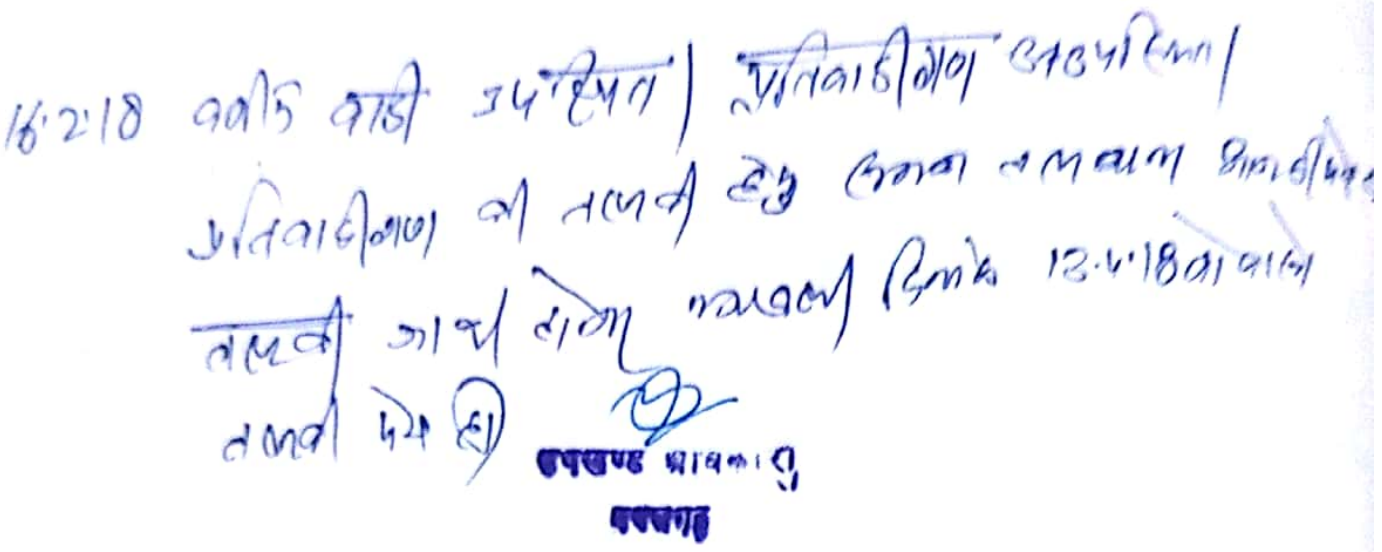 16.2.18 वकील वादी उपस्थित। प्रतिवादीगण अनुपस्थित।
प्रतिवादीगण की तलबी हेतु तलवाना
तलबी जारी होवे। पत्रावली दिनांक 12.4.18 को वास्ते
तलबी पेश हो।
उपखण्ड अधिकारी